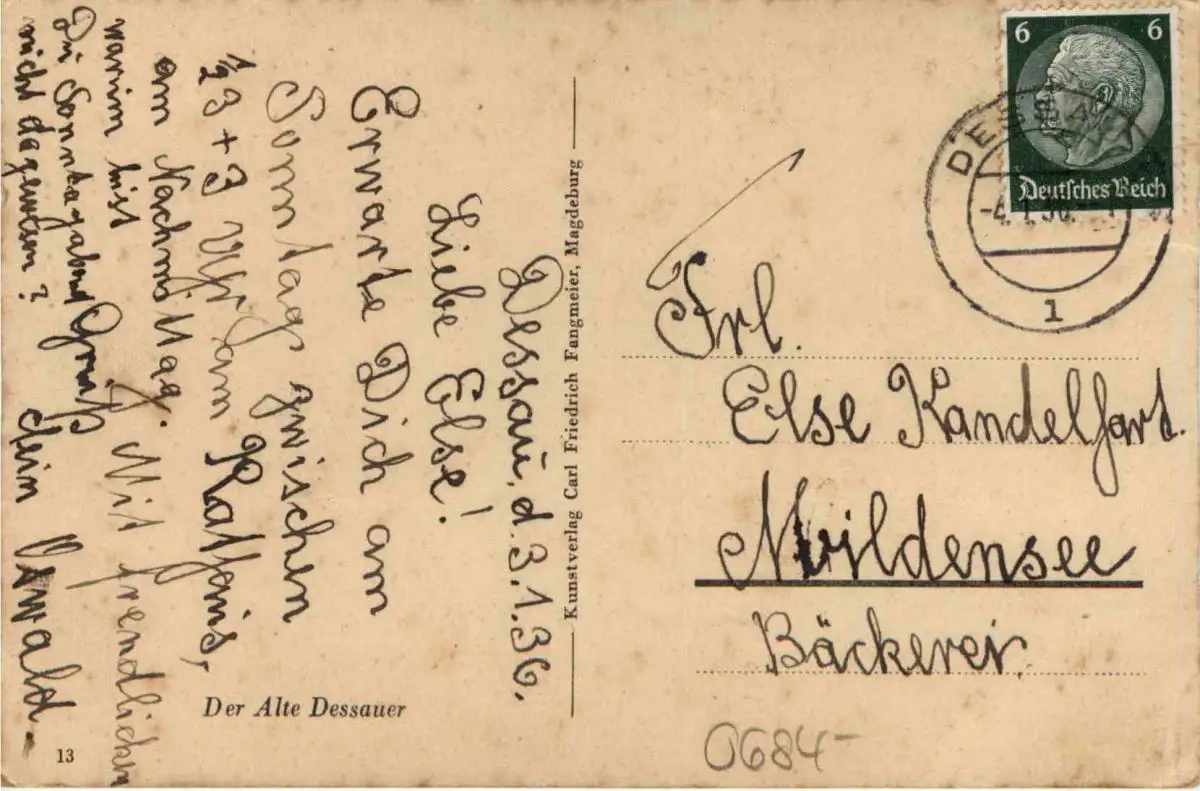 Dessau, d. 3.1.36.
Liebe Else!
Erwarte Dich am
Sonntag zwischen
½3 + 3 Uhr am Rathaus,
am Nachmittag. Mit freundlichen
Gruß
dein Oswald.
warum bist
Du Sonntagabend
nicht dagewesen?
Der Alte Dessauer
13
Kunstverlag Carl Friedrich Fangmeier, Magdeburg
6 6
Deutsches Reich
1
Frl.
Else Kandelhart.
Mildensee
Bäckerei.
0684-